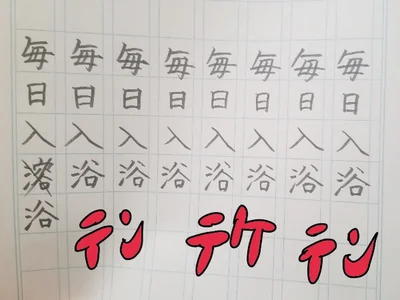 毎日入浴
毎日入浴
毎日入浴
毎日入浴
毎日入浴
毎日入浴
毎日入浴
毎日入浴
テン テケ テン